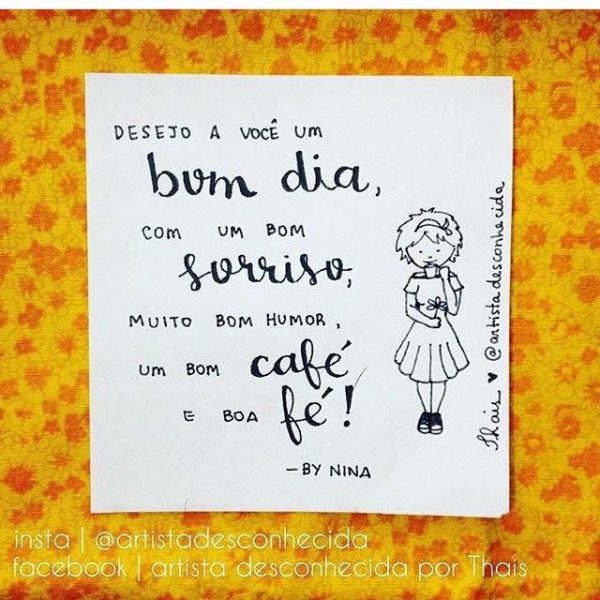 DESEJO A VOCÊ UM
bom dia,
COM UM BOM
sorriso,
MUITO BOM HUMOR,
UM BOM café
E BOA fé!
- BY NINA
Thais ♥ @artistadesconhecida
insta | @artistadesconhecida
facebook | artista desconhecida por Thais